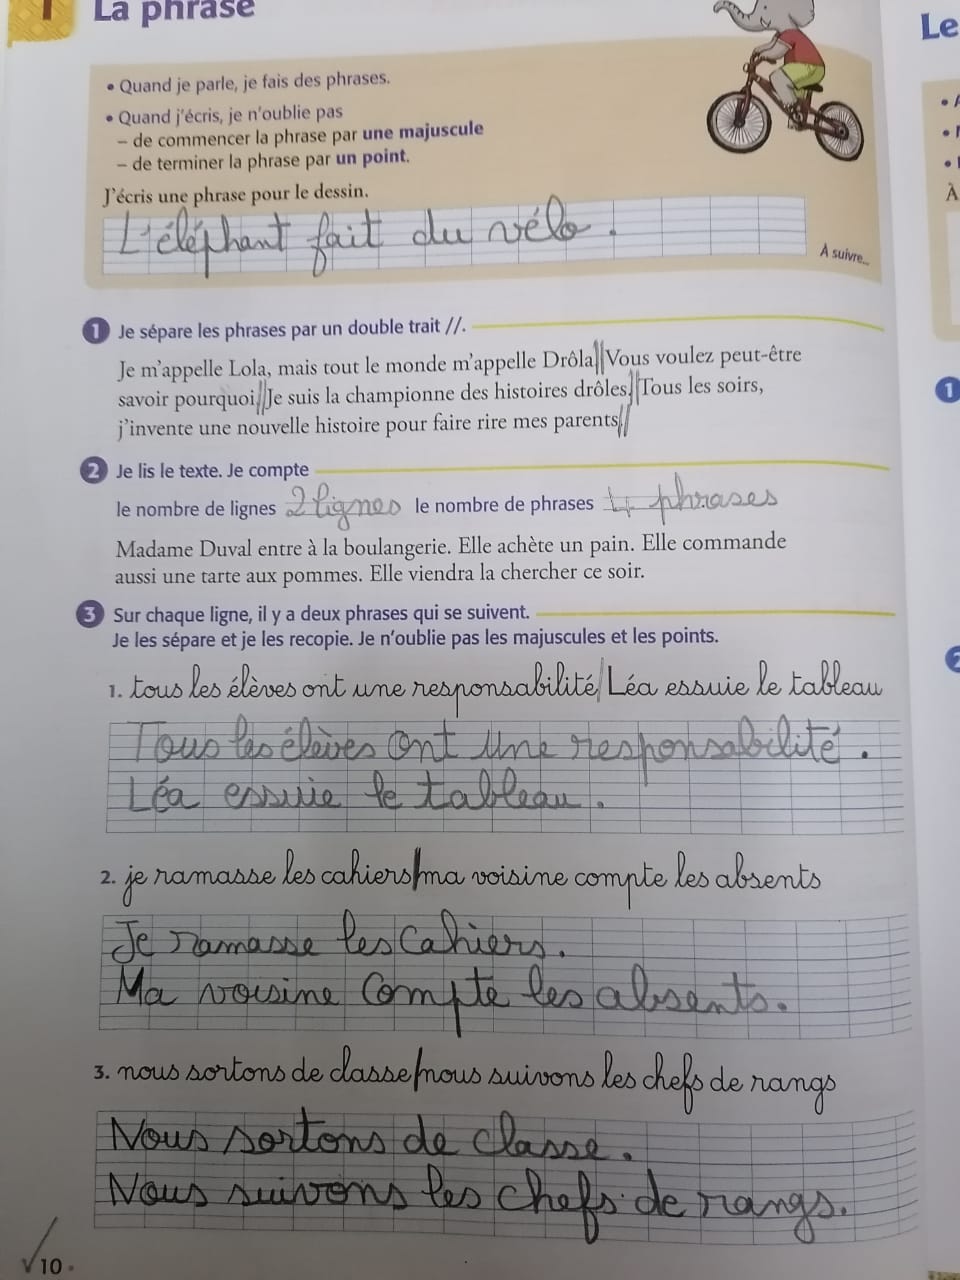 1 La phrase
Le
• Quand je parle, je fais des phrases.
• Quand j'écris, je n'oublie pas
– de commencer la phrase par une majuscule
– de terminer la phrase par un point.
J'écris une phrase pour le dessin.
L'éléphant fait du vélo.
À suivre...
À
1 Je sépare les phrases par un double trait //.
Je m'appelle Lola, mais tout le monde m'appelle Drôla.//Vous voulez peut-être
savoir pourquoi.//Je suis la championne des histoires drôles.//Tous les soirs,
j'invente une nouvelle histoire pour faire rire mes parents.//
1
2 Je lis le texte. Je compte
le nombre de lignes 2 lignes le nombre de phrases 4 phrases
Madame Duval entre à la boulangerie. Elle achète un pain. Elle commande
aussi une tarte aux pommes. Elle viendra la chercher ce soir.
3 Sur chaque ligne, il y a deux phrases qui se suivent.
Je les sépare et je les recopie. Je n'oublie pas les majuscules et les points.
2
1. tous les élèves ont une responsabilité/Léa essuie le tableau
Tous les élèves ont une responsabilité.
Léa essuie le tableau.
2. je ramasse les cahiers/ma voisine compte les absents
Je ramasse les cahiers.
Ma voisine compte les absents.
3. nous sortons de classe/nous suivons les chefs de rangs
Nous sortons de classe.
Nous suivons les chefs de rangs.
10